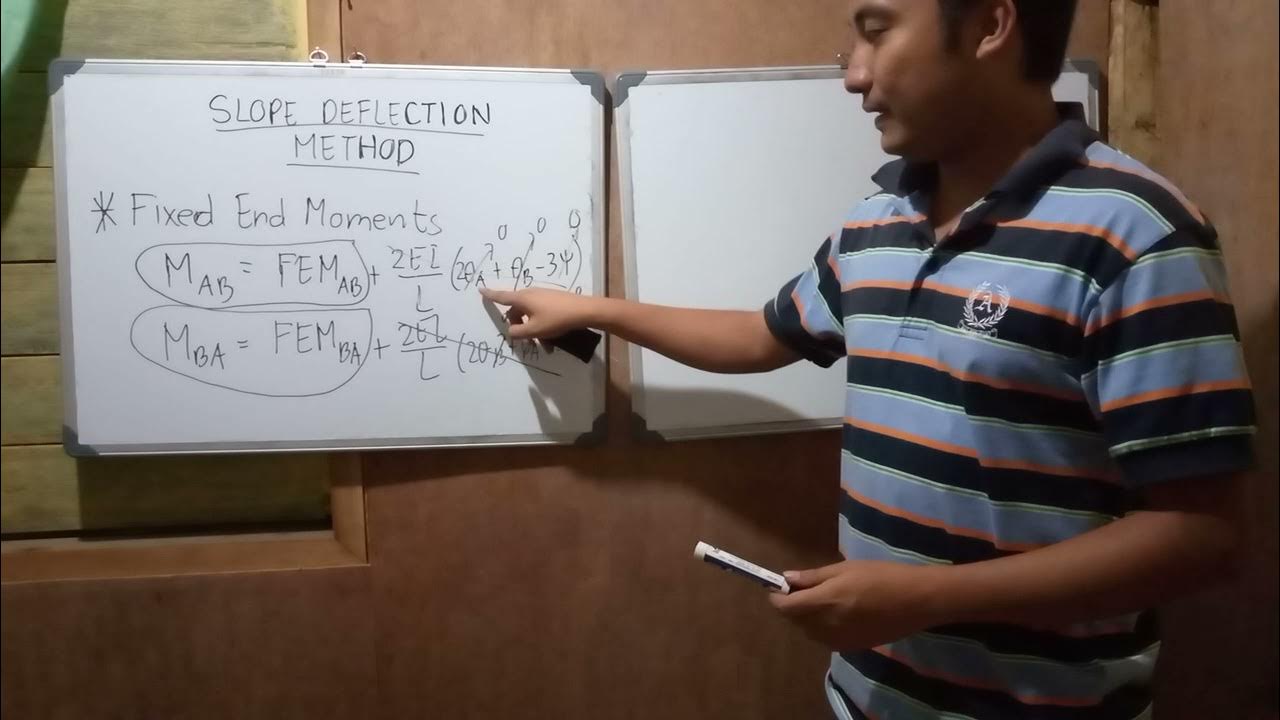 SLOPE DEFLECTION
METHOD
* Fixed End Moments
0 0 0
M_AB = FEM_AB + 2EI/L (2θ_A + θ_B - 3Ψ)
M_BA = FEM_BA + 2EI/L (2θ_B + θ_A
A